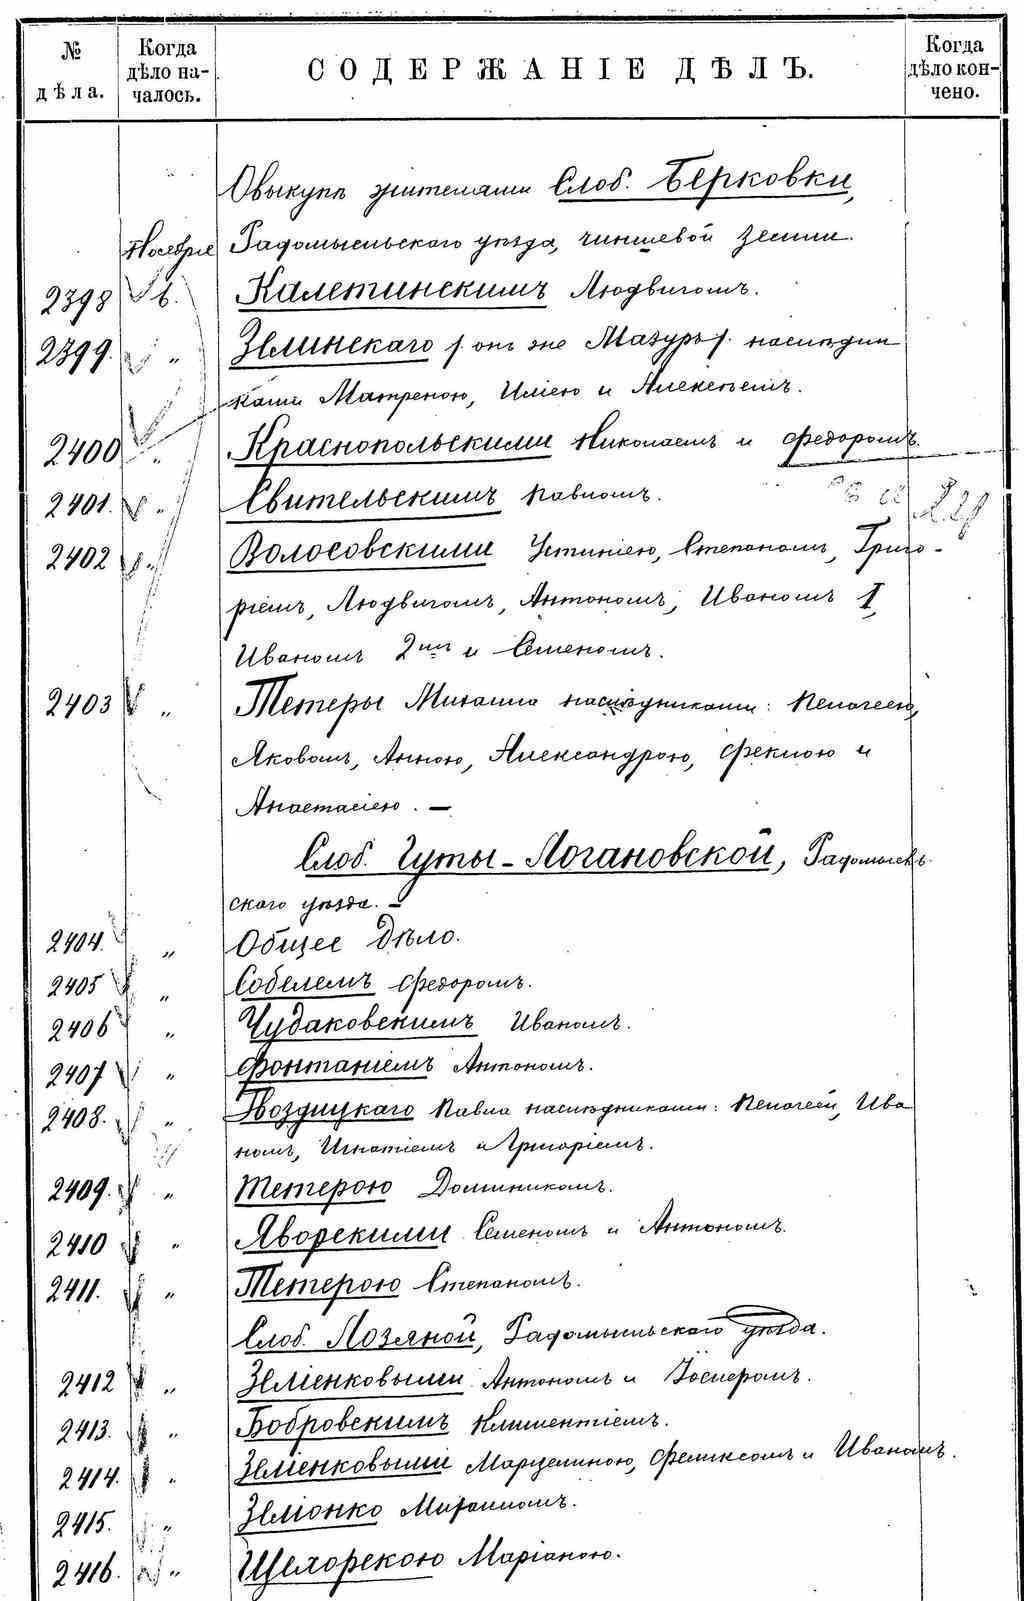 № дѣла.
Когда дѣло началось.
СОДЕРЖАНІЕ ДѢЛЪ.
Когда дѣло кончено.
О выкупѣ жителями Слоб. Берковки,
Ноября Радомысльскаго уѣзда, чиншевой земли.
2398 6. Калетинскимъ Людвигомъ.
2399. „ Зелинскаго /онъ же Мазуръ/ наслѣдни
ками Матреною, Иліею и Алексѣемъ.
2400 „ Краснопольскими Николаемъ и Федоромъ.
2401. „ Свительскимъ Павломъ.
2402 „ Волосовскими Устиніею, Степаномъ, Григо-
ріемъ, Людвигомъ, Антономъ, Иваномъ I,
Иваномъ 2мъ и Семеномъ.
2403 „ Тетеры Михаила наслѣдниками: Пелагеею,
Яковомъ, Анною, Александрою, Феклою и
Анастасіею. —
Слоб. Гуты-Логановской, Радомысль
скаго уѣзда. —
2404. „ Общее дѣло.
2405 „ Собелемъ Федоромъ.
2406 „ Чудаковскимъ Иваномъ.
2407 „ Фонтаніемъ Антономъ.
2408. „ Гвоздицкаго Павла наслѣдниками: Пелагеей, Ива
номъ, Игнатіемъ и Григоріемъ.
2409. „ Тетерою Доминикомъ.
2410 „ Яворскими Семеномъ и Антономъ.
2411. „ Тетерою Степаномъ.
Слоб. Лозяной, Радомысльскаго уѣзда.
2412 „ Зеліенковыми Антономъ и
2413. „ Бобровскимъ Климентіемъ.
2414. „ Зеліенковыми Марцелиною, Феликсомъ и Иваномъ.
2415. „ Зеліонко Михаиломъ.
2416. „ Щелорскою Маріаною.